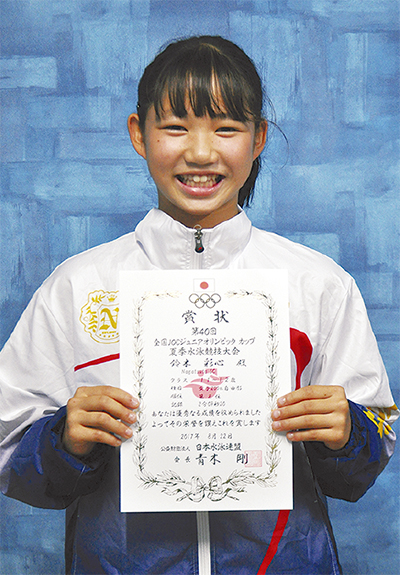 賞 状
第40回
全国JOCジュニアオリンピック カップ
夏季水泳競技大会
鈴木 彩心 殿
クラス
種目
順位
記録
あなたは優秀なる成績を収められました
よってその栄誉を讃えこれを賞します
2017年 8月
公益財団法人 日本水泳連盟
会長 青木 剛
N